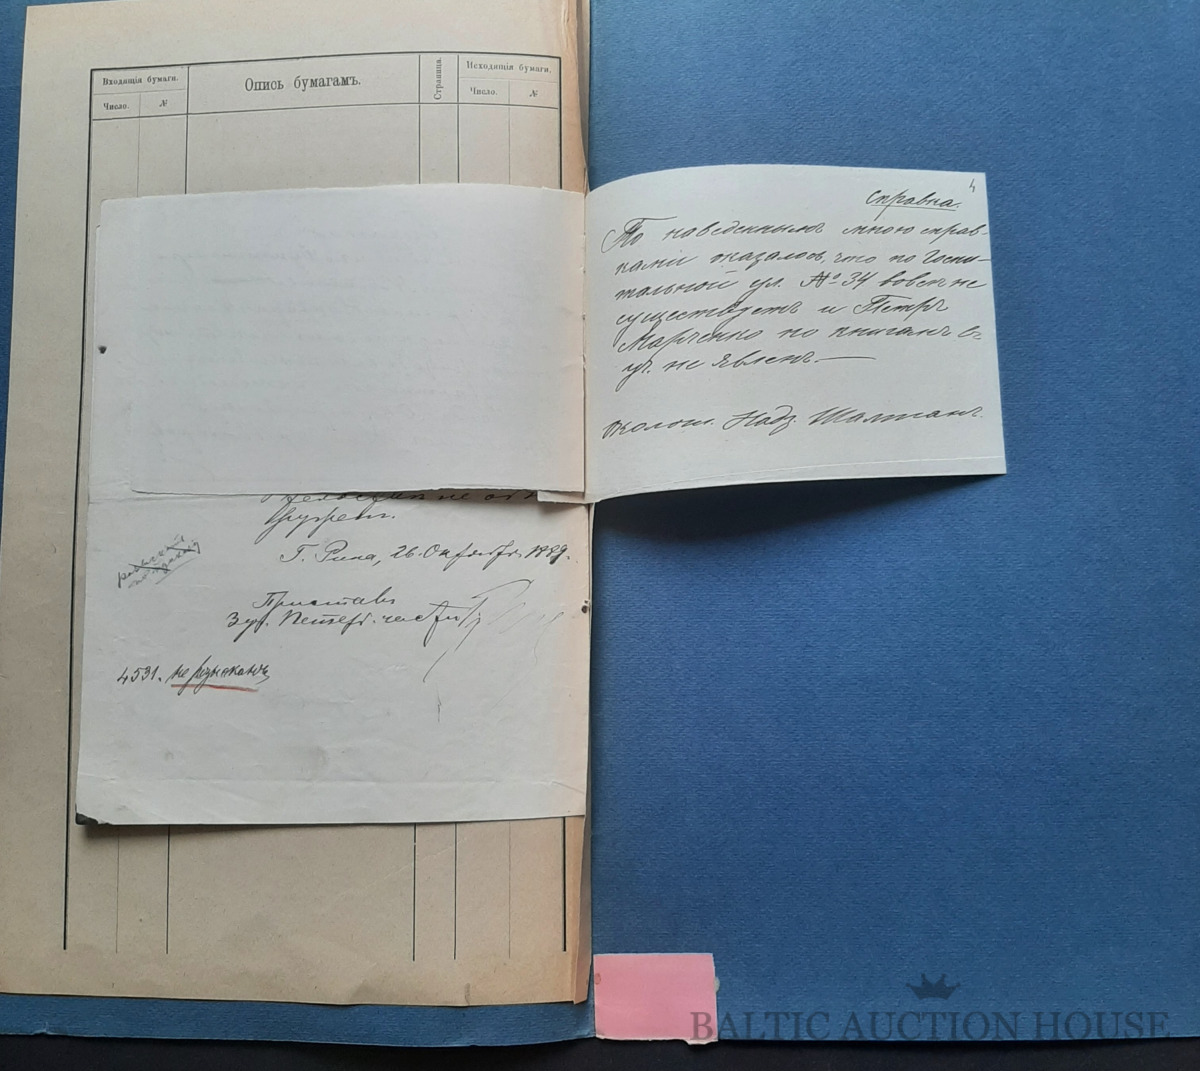 Входящія бумаги.
Число.
№
Опись бумагамъ.
Страница.
Исходящія бумаги.
Число.
№
4
Справка.
По наведеннымъ мною справ-
камъ оказалось, что по Госпи-
тальной ул. № 34 вовсе не
существуетъ и Петръ
Марченко по книгамъ
уч. не явленъ.—
Околот. Надз.
не
26. Октября 1889.
Приставъ
3 уч. Петерб. части
4531. не розысканъ
BALTIC AUCTION HOUSE